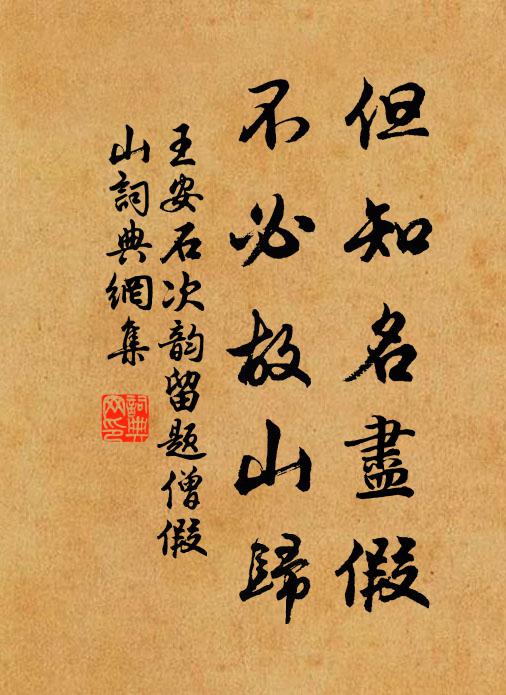 但知名盡假
不必故山歸
王安石次韵留題僧假
山詞典網集
詞典
网印